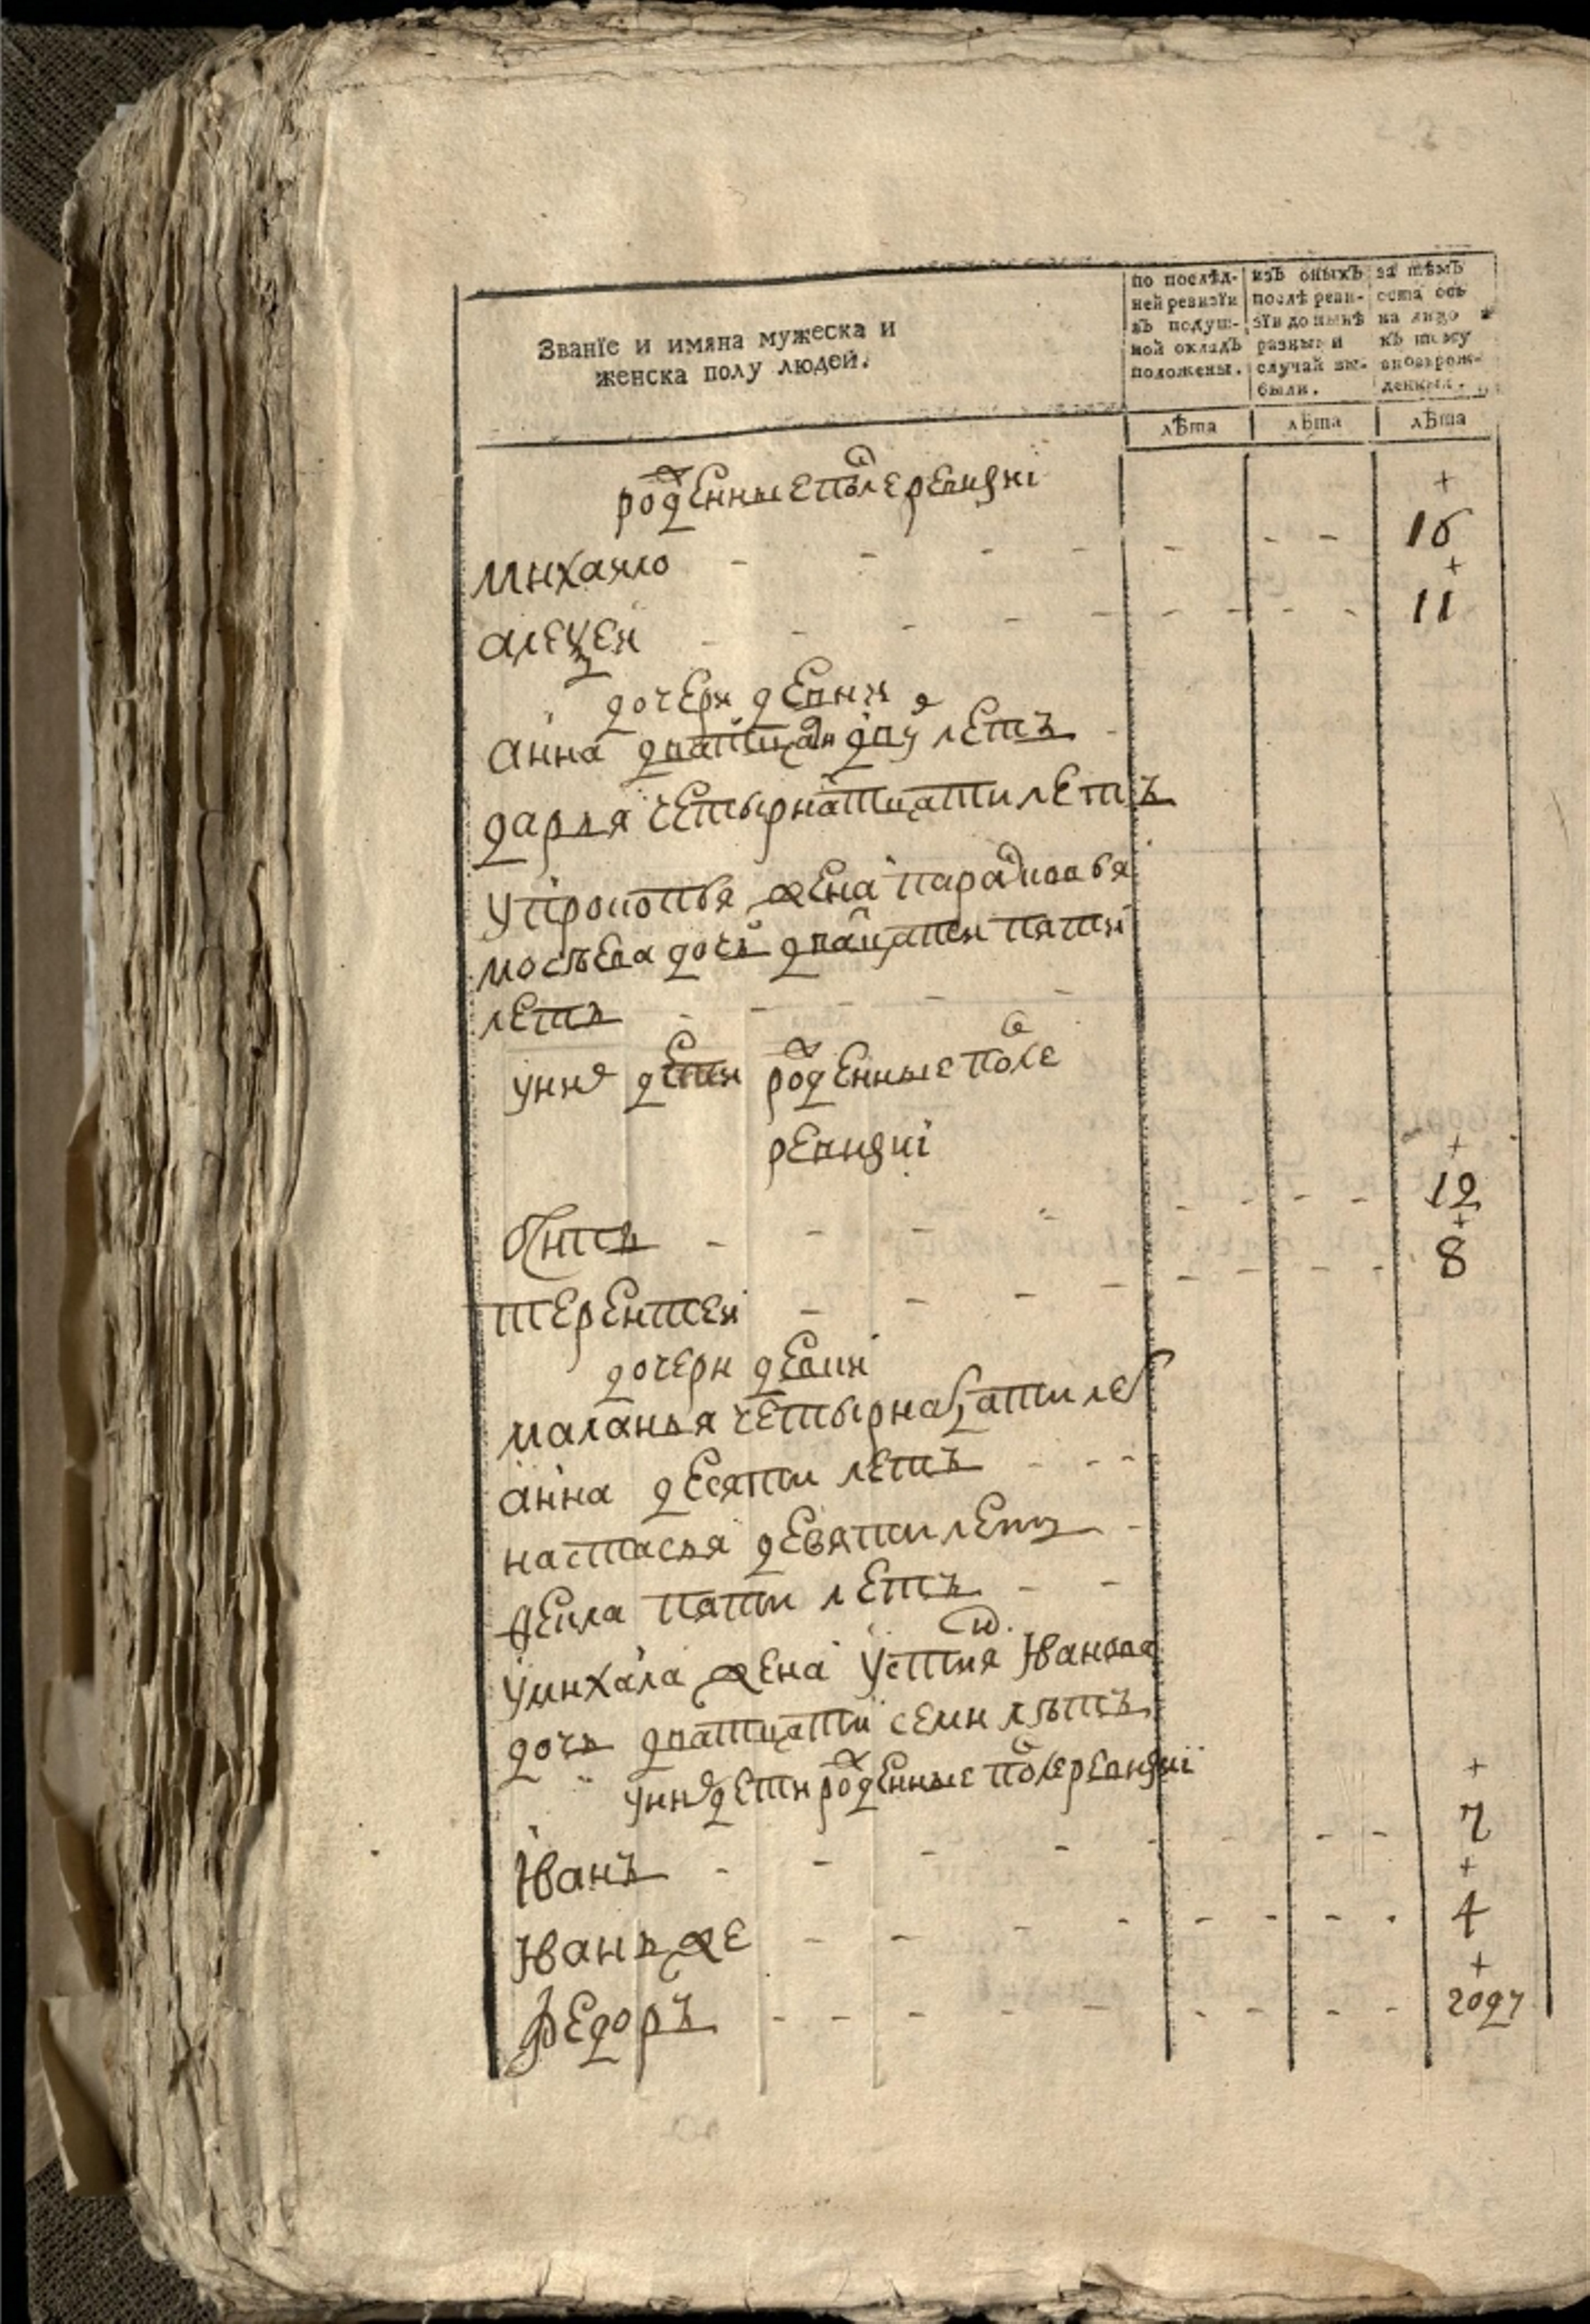 Званїе и имяна мужеска и
женска полу людей.
по послѣд-
ней ревизїи
въ подуш-
ной окладъ
положены.
изъ оныхъ
послѣ реви-
зїи до нынѣ
разными
случай вы-
были.
за тѣмъ
оста ось
на лицо
къ тому
вновьрож-
денныя.
лѣта лѣта лѣта
рожденные после ревизиі
+
михаило - - - - - - - 16
+
алеѯеи - - - - - - - - 11
дочери девки
анна дватцати двух летъ
дарья четырнатцати летъ
упрокопья жена парасковья
мосѣева дочь двацати пяти
летъ - - - -
уних дети рожденные после
ревизиі
+
осипъ - - - - - - - 12
+
терентеи - - - - - - - 8
дочери девки
маланья четырнатцати лет
анна десяти летъ - - -
настасья девяти летъ -
фекла пяти летъ - -
умихаила жена устиня Иванова
дочь дватцати семи лѣтъ
уних дети рожденные после ревизиі
+
Иванъ - - - - - - - - 7
+
Иванъ же - - - - - - - 4
+
Федоръ - - - - - - - - году